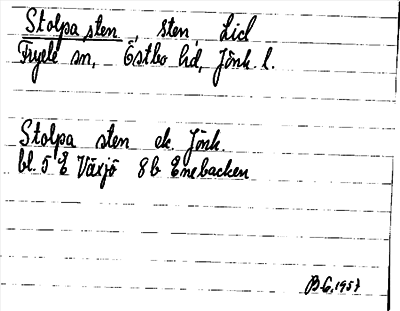 Stolpa sten, sten, Lid
Fryele sn, Östbo hd, Jönk. l.
Stolpa sten ek. Jönk.
bl. 5 E Växjö 8b Enebacken
B.G. 1957